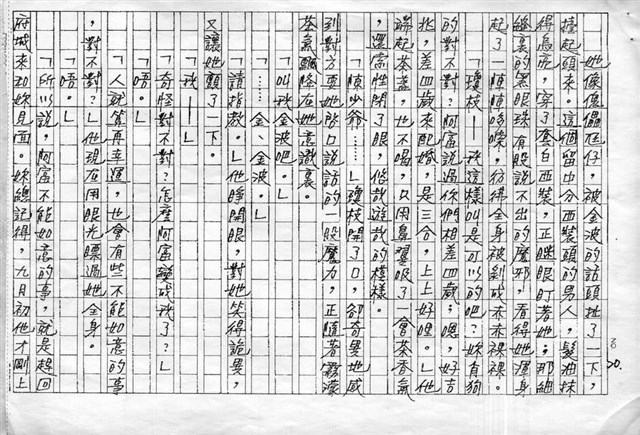 她像傀儡尪仔，被金波的話頭扯了一下，
擡起頭來。這個留中分西裝頭的男人，髮油抹
得烏亮，穿了套白西裝，正瞇眼盯著她；那細
縫裏的黑眼珠有股說不出的魔邪，看得她渾身
起了一陣陣哆嗦，彷彿全身被剝成赤赤裸裸。
「瓊枝——我這樣叫是可以的吧？妳有狗
的對不對？阿富說過你們相差四歲；嗯，好吉
兆，差四歲來配婚，是三合，上上好哩。」他
端起茶盞，也不喝，只用鼻嗅吸了一會茶香氣
，還索性閉了眼，悠哉遊哉的模樣。
「陳少爺……」瓊枝開了口，卻奇異地感
到對方要她啟口說話的一股魔力，正隨著霧濛
茶氣飄降在她意識裏。
「叫我金波吧。」
「……金、金波。」
「請指教。」他睜開眼，對她笑得詭異，
又讓她顫了一下。
「我——」
「奇怪對不對？怎麼阿富變成我了？」
「唔。」
「人就算再幸運，也會有些不能如意的事
，對不對？」他現在用眼光瞟過她全身。
「唔。」
「所以說，阿富不能如意的事，就是趕回
府城來和妳見面。妳總記得，九月初他才剛上
20.